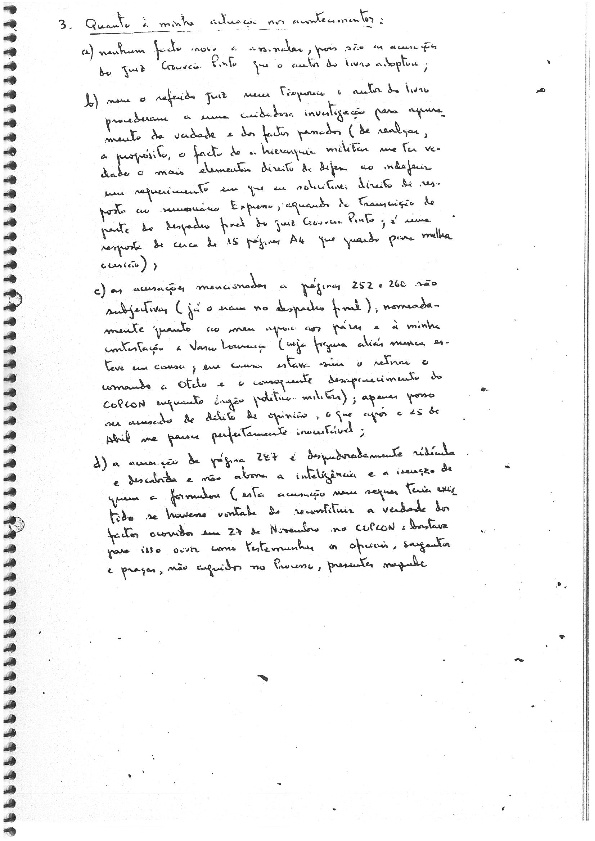 3. Quanto à minha actuação nos acontecimentos:
a) nenhum facto novo a assinalar, pois são as acusações
do juiz Gouveia Pinto que o autor do livro adoptou;
b) nem o referido juiz nem o autor do livro
procederam a uma cuidadosa investigação para apura-
mento da verdade e dos factos passados (de realçar,
a propósito, o facto de a hierarquia militar me ter ve-
dado o mais elementar direito de defesa ao indeferir
um requerimento em que eu solicitei direito de res-
posta ao semanário Expresso, aquando da transcrição de
parte do despacho final do juiz Gouveia Pinto; é uma
resposta de cerca de 15 páginas A4 que guardo para melhor
ocasião);
c) as acusações mencionadas a páginas 252 e 260 são
subjectivas (já o eram no despacho final), nomeada-
mente quanto ao meu apoio aos páras e à minha
contestação a Vasco Lourenço (cuja figura aliás nunca es-
teve em causa; em causa estava sim o retirar o
comando a Otelo e o consequente desaparecimento do
COPCON enquanto órgão político-militar); apenas posso
ser acusado de delito de opinião, o que após o 25 de
Abril me parece perfeitamente
d) a acusação da página 287 é despudoradamente ridícula
e descabida e não abona a inteligência e a isenção de
quem a formulou (esta acusação nem sequer teria exis-
tido se houvesse vontade de reconstituir a verdade dos
factos ocorridos em 27 de Novembro no COPCON; bastava
para isso ouvir como testemunhas os oficiais, sargentos
e praças, não arguidos no Processo, presentes naquele